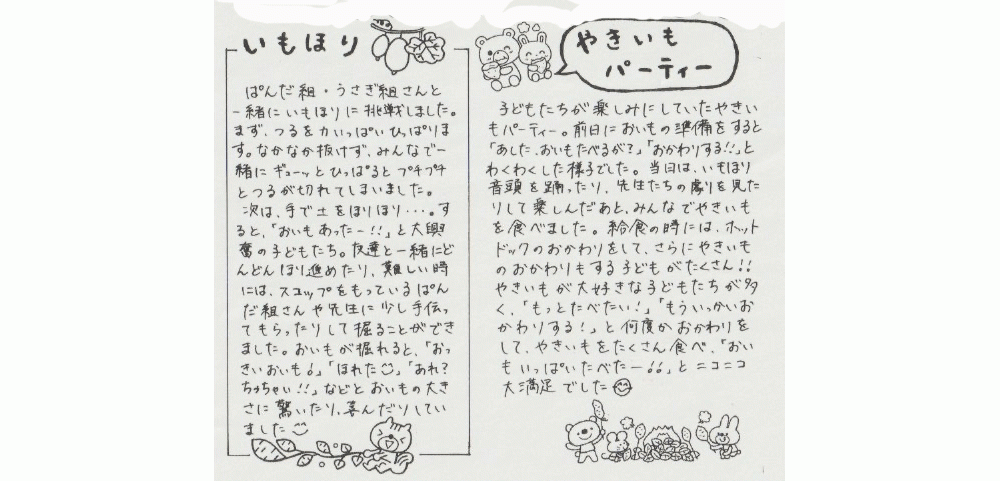 いもほり
ぱんだ組・うさぎ組さんと
一緒にいもほりに挑戦しました。
まず、つるを力いっぱいひっぱりま
す。なかなか抜けず、みんなで一
緒にギューッとひっぱるとプチプチ
とつるが切れてしまいました。
次は、手で土をほりほり・・・。す
ると、「おいもあったー!!」と大興
奮の子どもたち。友達と一緒にど
んどんほり進めたり、難しい時
には、スコップをもっているぱん
だ組さんや先生に少し手伝っ
てもらったりして掘ることができ
ました。おいもが掘れると、「おっ
きいおいも!」「ほれた」「あれ?
ちっちゃい!!」などとおいもの大き
さに驚いたり、喜んだりしてい
ました
やきいも
パーティー
子どもたちが楽しみにしていたやきい
もパーティー。前日においもの準備をすると
「あした、おいもたべるが?」「おかわりする!!」と
わくわくした様子でした。当日は、いもほり
音頭を踊ったり、先生たちの劇を見た
りして楽しんだあと、みんなでやきいも
を食べました。給食の時には、ホット
ドックのおかわりをして、さらにやきいも
のおかわりもする子どもがたくさん!!
やきいもが大好きな子どもたちが多
く、「もっとたべたい!」「もういっかいお
かわりする!」と何度かおかわりを
して、やきいもをたくさん食べ、「おい
もいっぱいたべたー!!」とニコニコ
大満足でした